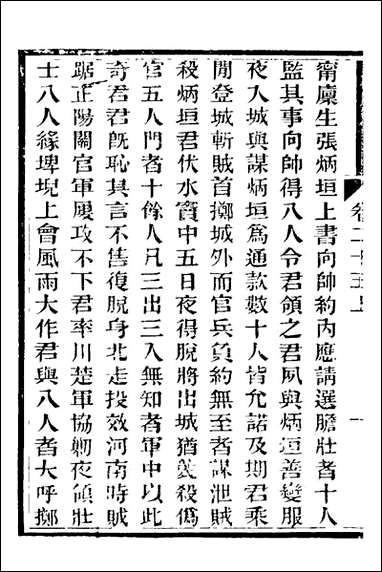 甯廩生張炳垣上書向帥約內應請選膽壯者十人
監其事向帥得八人令君領之君夙與炳垣善變服
夜入城與謀炳垣爲通款數十人皆允諾及期君乘
閒登城斬賊首擲城外而官兵負約無至者謀泄賊
殺炳垣君伏水竇中五日夜得脫將出城猶義殺僞
官五人門者十餘人凡三出三入無知者軍中以此
奇君君旣恥其言不售復脫身北走投效河南時賊
踞正陽關官軍屢攻不下君率川楚軍協勦夜傾壯
士八人緣埤堄上會風雨大作君與八人者大呼擲
卷二十五上